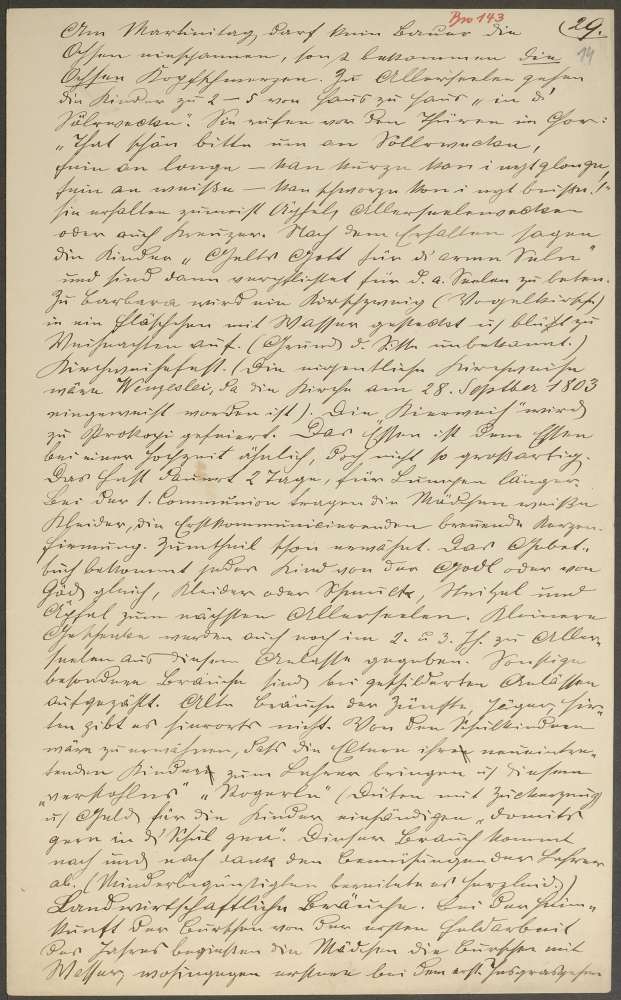 Bw 143
29.
14
Am Martinitag darf kein Bauer die
Ochsen einspannen, sonst bekommen die
Ochsen Kopfschmerzen. Zu Allerseelen gehen
die Kinder zu 2 – 5 von Haus zu Haus „in d'
Sie rufen vor den Thüren im Chor:
„That schön bitte um an
sie erhalten zumeist Äpfel, Allerseelenwecken
oder auch Kreuzer. Nach dem Erhalten sagen
die Kinder „Gelts Gott für d'arme Seln"
und sind dann verpflichtet für d. a. Seelen zu beten.
Zu Barbara wird ein Kirschzweig (Vogelkirsch)
in ein Fläschchen mit Wasser gesteckt u. blüht zu
Weihnachten auf. (Grund d. Sitte unbekannt.)
Kirchweihfest. (Die eigentliche Kirchweihe
wäre Wenzeslei, da die Kirche am 28. Septber 1803
eingeweiht worden ist). Die „Kierweih" wird
zu Prokopi gefeiert. Das Essen ist dem Essen
bei einer Hochzeit ähnlich, doch nicht so großartig.
Das Fest dauert 2 Tage, für Lumpen länger.
Bei der 1. Communion tragen die Mädchen weiße
Kleider, die Erstkommunicierenden brennende Kerzen.
Firmung. Zumtheil schon erwähnt. Das Gebet-
buch bekommt jedes Kind von der Godl oder von
Göd gleich, Kleider oder Schmuck, Striezel und
Äpfel zum nächsten Allerseelen. Kleinere
Geschenke werden auch noch im 2. u 3. Jh. zu Aller-
seelen aus diesem Anlasse gegeben. Sonstige
besondere Bräuche sind bei geschilderten Anlässen
aufgezählt. Alte Bräuche der Zünfte, Jäger, Hir-
ten gibt es hierorts nicht. Von den Schulkindern
wäre zu erwähnen, dass die Eltern ihre neueintre-
tenden Kinder zum Lehrer bringen u. diesem
„verstohlns" „Stogerln" (Düten mit Zuckerzeug
u. Geld) für die Kinder einhändigen „domits
gern in d' Schul gen". Dieser Brauch kommt
nach und nach dank den Bemühungen der Lehrer
ab. (Minderbegünstigten bereitete es Herzleid.)
Landwirtschaftliche Bräuche. Bei der Heim-
kunft der Burschen von der ersten Feldarbeit
des Jahres begießen die Mädchen die Burschen mit
Wasser, wohingegen erstere bei dem erst.